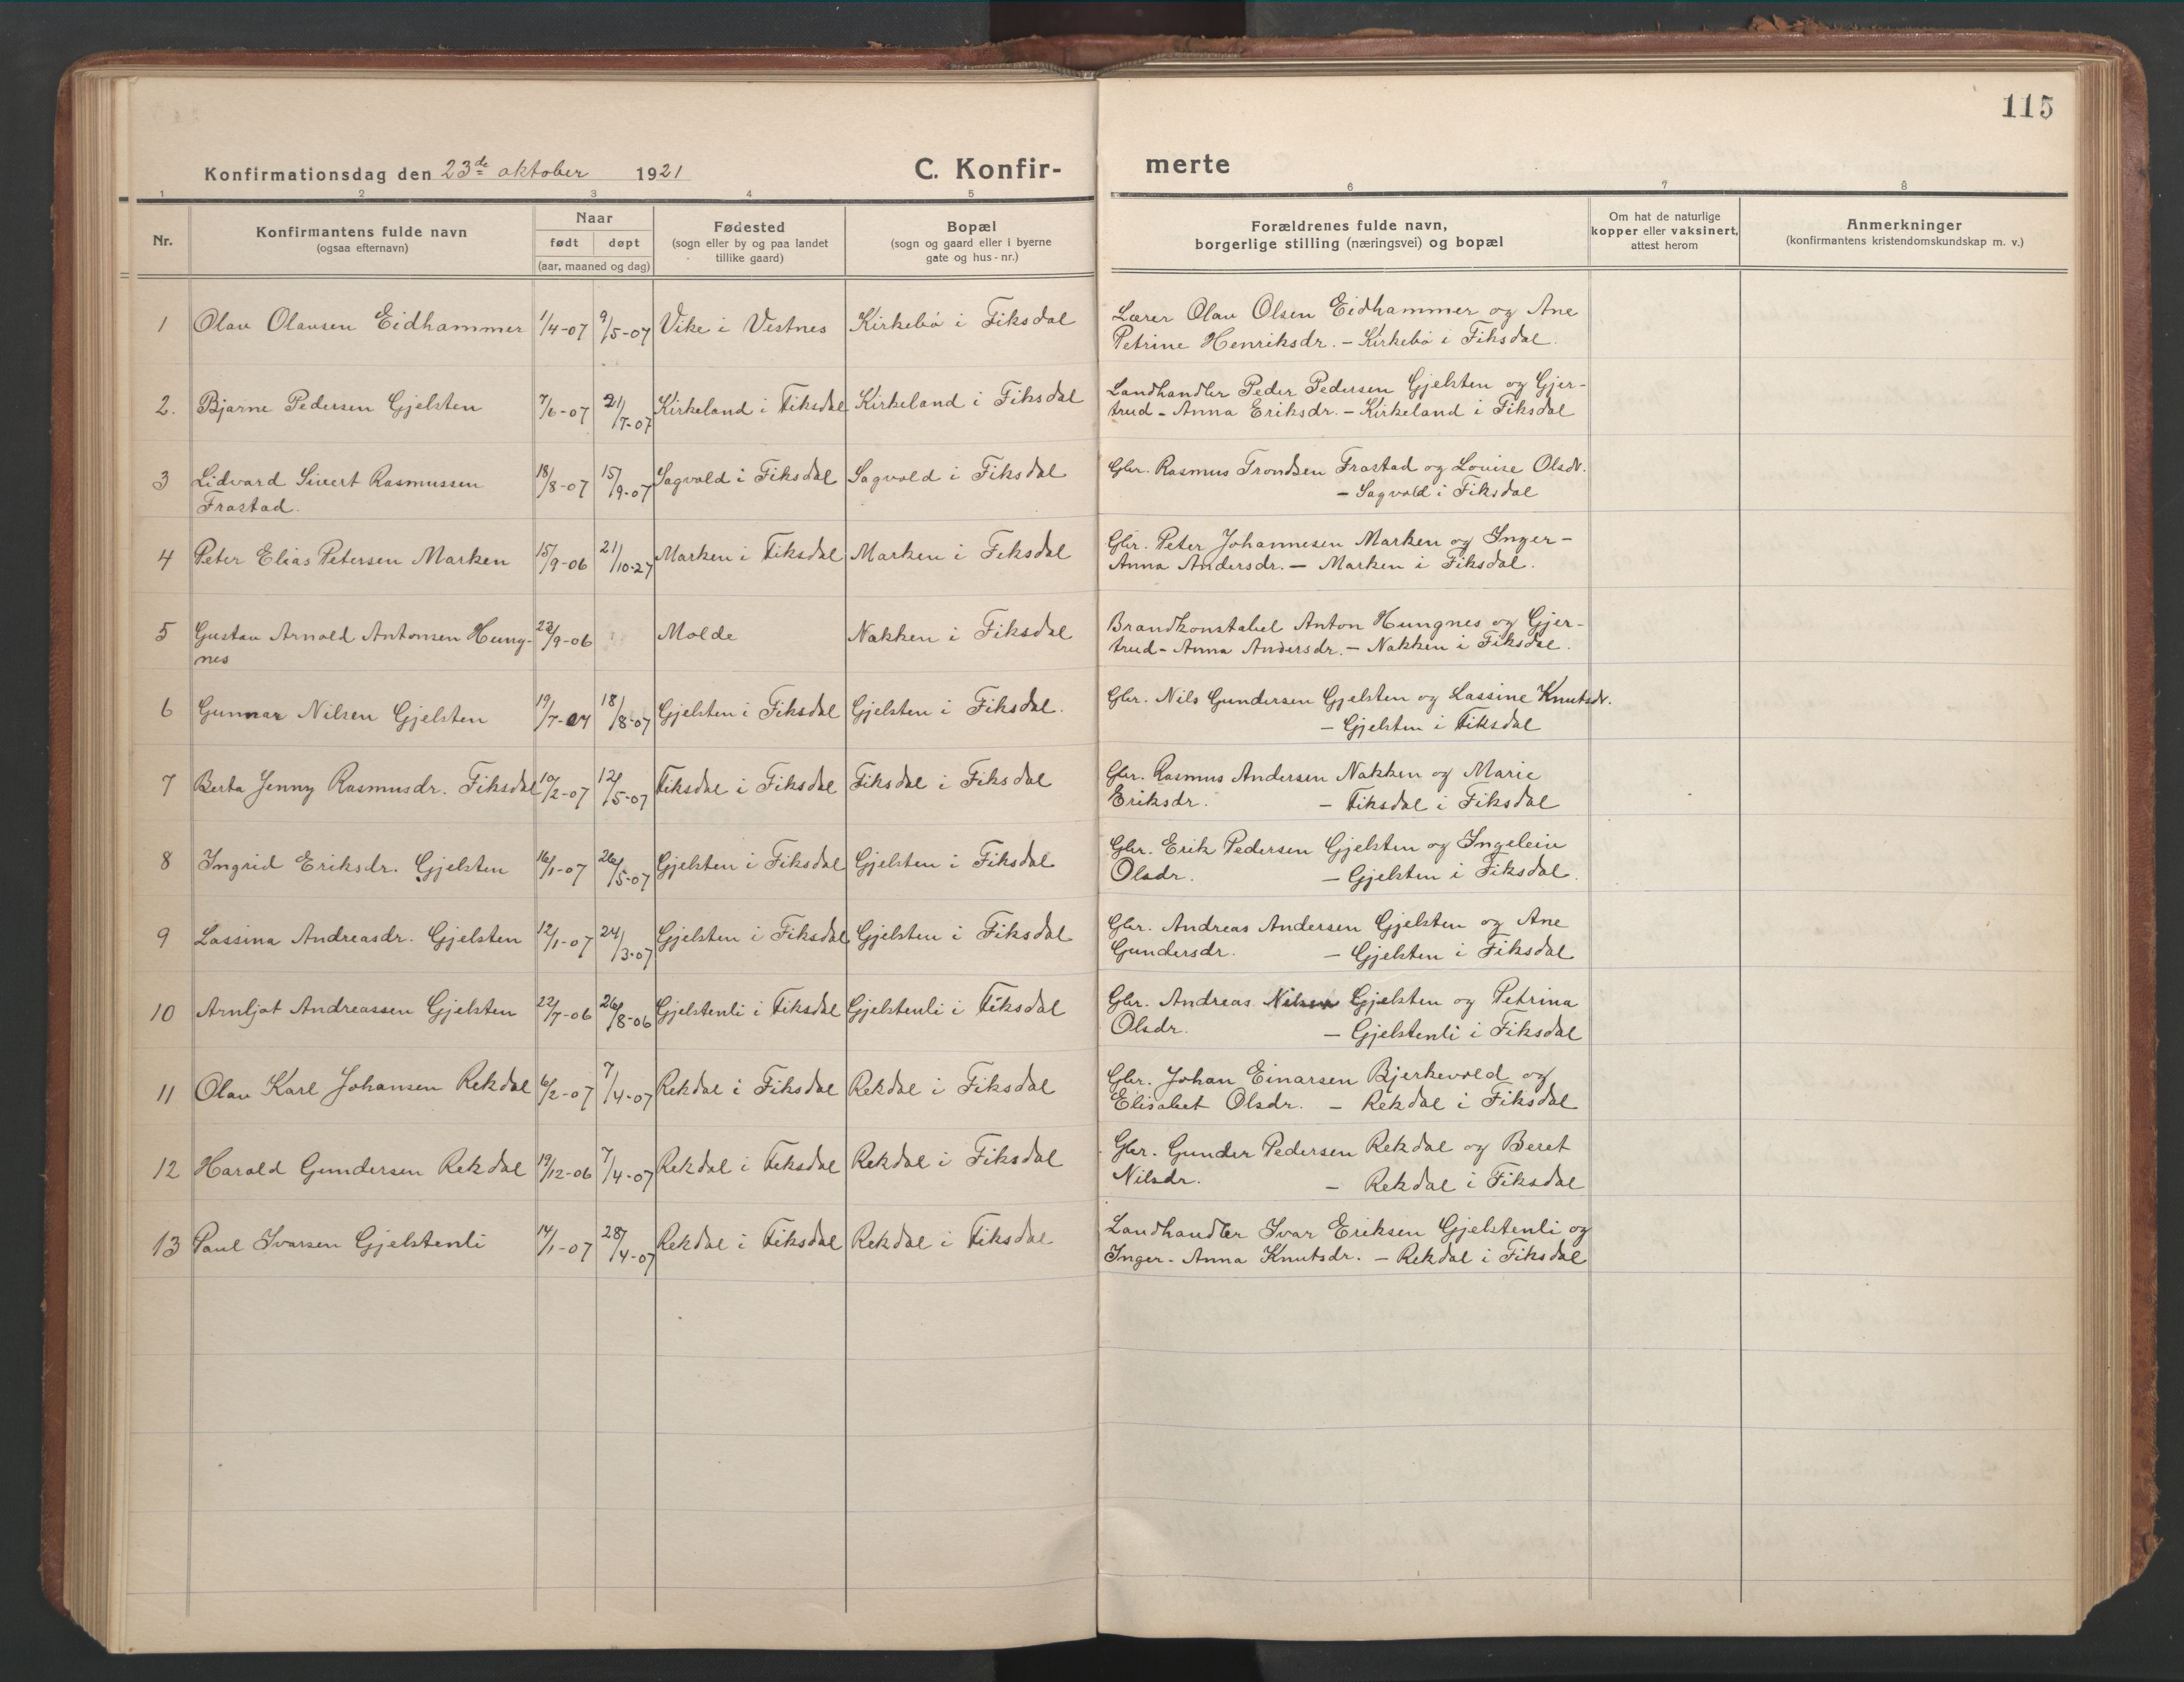 115
Konfirmationsdag den 23de oktober 1921 C. Konfir- merte
1 2 3 4 5 6 7 8
Nr. Konfirmantens fulde navn (ogsaa efternavn) Naar født døpt (aar, maaned og dag) Fødested (sogn eller by og paa landet tillike gaard) Bopæl (sogn og gaard eller i byerne gate og hus-nr.) Forældrenes fulde navn, borgerlige stilling (næringsvei) og bopæl Om hat de naturlige kopper eller vaksinert, attest herom Anmerkninger (konfirmantens kristendomskundskap m. v.)
1 Olav Olausen Eidhammer 1/4-07 9/5-07 Vike i Vestnes Kirkebø i Fiksdal Lærer Olav Olsen Eidhammer og Ane
Petrine Henriksdr. - Kirkebø i Fiksdal.
2. Bjarne Pedersen Gjelsten 7/6-07 21/7-07 Kirkeland i Fiksdal Kirkeland i Fiksdal Landhandler Peder Pedersen Gjelsten og Gjer-
trud-Anna Eriksdr. - Kirkeland i Fiksdal
3 Lidvard Sivert Rasmussen 18/8-07 15/9-07 Sagvold i Fiksdal Sagvold i Fiksdal Gbr. Rasmus Trondsen Frastad og Louise Olsdr.
Frastad. - Sagvold i Fiksdal
4 Peter Elias Petersen Marken 15/9-06 21/10-27 Marken i Fiksdal Marken i Fiksdal Gbr. Peter Johannesen Marken og Inger-
Anna Andersdr. - Marken i Fiksdal.
5 Gustav Arnold Antonsen Hung- 23/9-06 Molde Nakken i Fiksdal Brandkonstabel Anton Hungnes og Gjer-
nes trud-Anna Andersdr. - Nakken i Fiksdal.
6 Gunnar Nilsen Gjelsten 19/7-07 18/8-07 Gjelsten i Fiksdal Gjelsten i Fiksdal. Gbr. Nils Gundersen Gjelsten og Lassine Knutsdr.
- Gjelsten i Fiksdal
7 Berta Jenny Rasmusdr. Fiksdal 10/2-07 12/5-07 Fiksdal i Fiksdal Fiksdal i Fiksdal Gbr. Rasmus Andersen Nakken og Marie
Eriksdr. - Fiksdal i Fiksdal
8 Ingrid Eriksdr. Gjelsten 16/1-07 26/5-07 Gjelsten i Fiksdal Gjelsten i Fiksdal Gbr. Erik Pedersen Gjelsten og Ingelein
Olsdr. - Gjelsten i Fiksdal.
9 Lassina Andreasdr. Gjelsten 12/1-07 24/3-07 Gjelsten i Fiksdal Gjelsten i Fiksdal Gbr. Andreas Andersen Gjelsten og Ane
Gundersdr. - Gjelsten i Fiksdal
10 Arnljot Andreassen Gjelsten 22/7-06 26/8-06 Gjelstenli i Fiksdal Gjelstenli i Fiksdal Gbr. Andreas Nilsen Gjelsten og Petrina
Olsdr. - Gjelstenli i Fiksdal
11 Olav Karl Johansen Rekdal 6/2-07 7/4-07 Rekdal i Fiksdal Rekdal i Fiksdal Gbr. Johan Einarsen Bjerkevold og
Elisabet Olsdr. - Rekdal i Fiksdal
12 Harald Gundersen Rekdal 19/12-06 7/4-07 Rekdal i Fiksdal Rekdal i Fiksdal Gbr. Gunder Pedersen Rekdal og Beret
Nilsdr. - Rekdal i Fiksdal
13 Paul Ivarsen Gjelstenli 14/1-07 28/4-07 Rekdal i Fiksdal Rekdal i Fiksdal Landhandler Ivar Eriksen Gjelstenli og
Inger-Anna Knutsdr. - Rekdal i Fiksdal